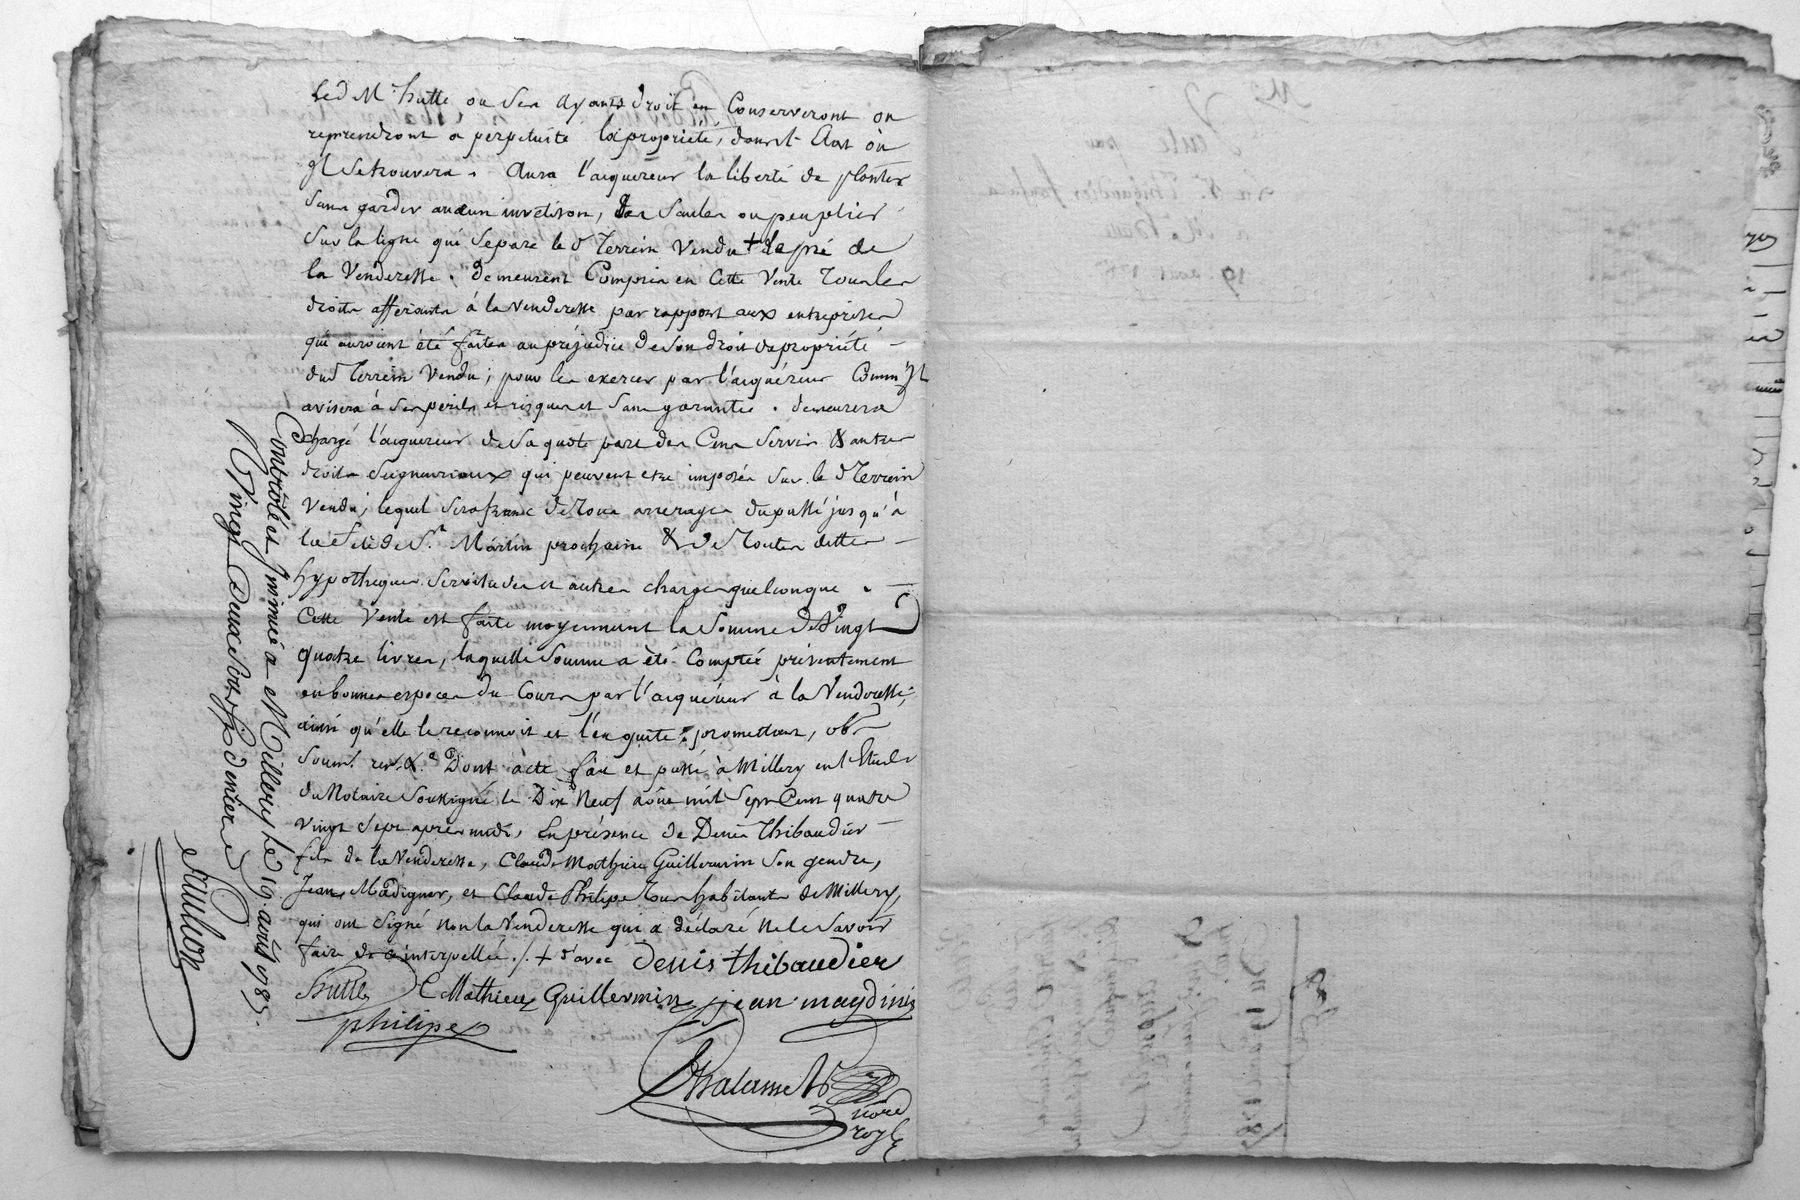 led Mr hutte ou Ses Ayants droit en Conserveront ou
reprendront a perpetuité la propriété, dans l'Etat où
Il Se trouvera. Aura l'acquereur la liberté de planter
Sans garder aucun invetison, des Saules ou peuplier
Sur la ligne qui Separe led Terrein Vendu + le pré de
la Venderesse. demeurent Compris en Cette Vente Tous les
droits afferants à la Venderesse par rapport aux entreprises
qui auroient été faites au préjudice de Son droit de propriété
dud Terrein Vendu; pour les exercer par l'acquéreur Comm'Il
avisera à Ses perils et risques et Sans garantie. demeurera
Chargé l'acquereur de Sa quote part des Cens Servis & autres
droits Seigneuriaux qui peuvent etre imposés Sur led Terrein
Vendu; lequel Sera franc de Tous arrerages du passé jusqu'à
la fete de St. Martin prochaine & de Toutes dettes
hypotheques Servitudes et autres charges quelconque.
Cette Vente est faite moyennant la Somme de Vingt
quatre livres, laquelle Somme a été Comptée présentement
en bonnes especes du Cours par l'acquéreur à la Venderesse,
ainsi qu'elle le reconnoit et l'en quitte; promettant, obt
Soum. ren. &.a Dont acte fait et passé à Millery en l'Etude
du Notaire Soussigné le Dix Neuf aout mil Sept Cent quatre
Vingt Sept après midi, En présence de Denis Thibaudier
fils de la Venderesse, Claude Mathieu Guillermin Son gendre,
Jean Madignier, et Claude Philipe Tous habitants de Millery,
qui ont Signé non la Venderesse qui a déclaré ne le Savoir
faire de ce interpellée ./. + d'avec denis thibaudier
hutte C Mathieux Guillermin jean maydinie
philipe
Chalamel
Nore
royl
Contrôlé et Insinué a Millery le 19. août 1787.
Vingt Deux Sous Six Deniers
Vente par
a
19 aout 1787